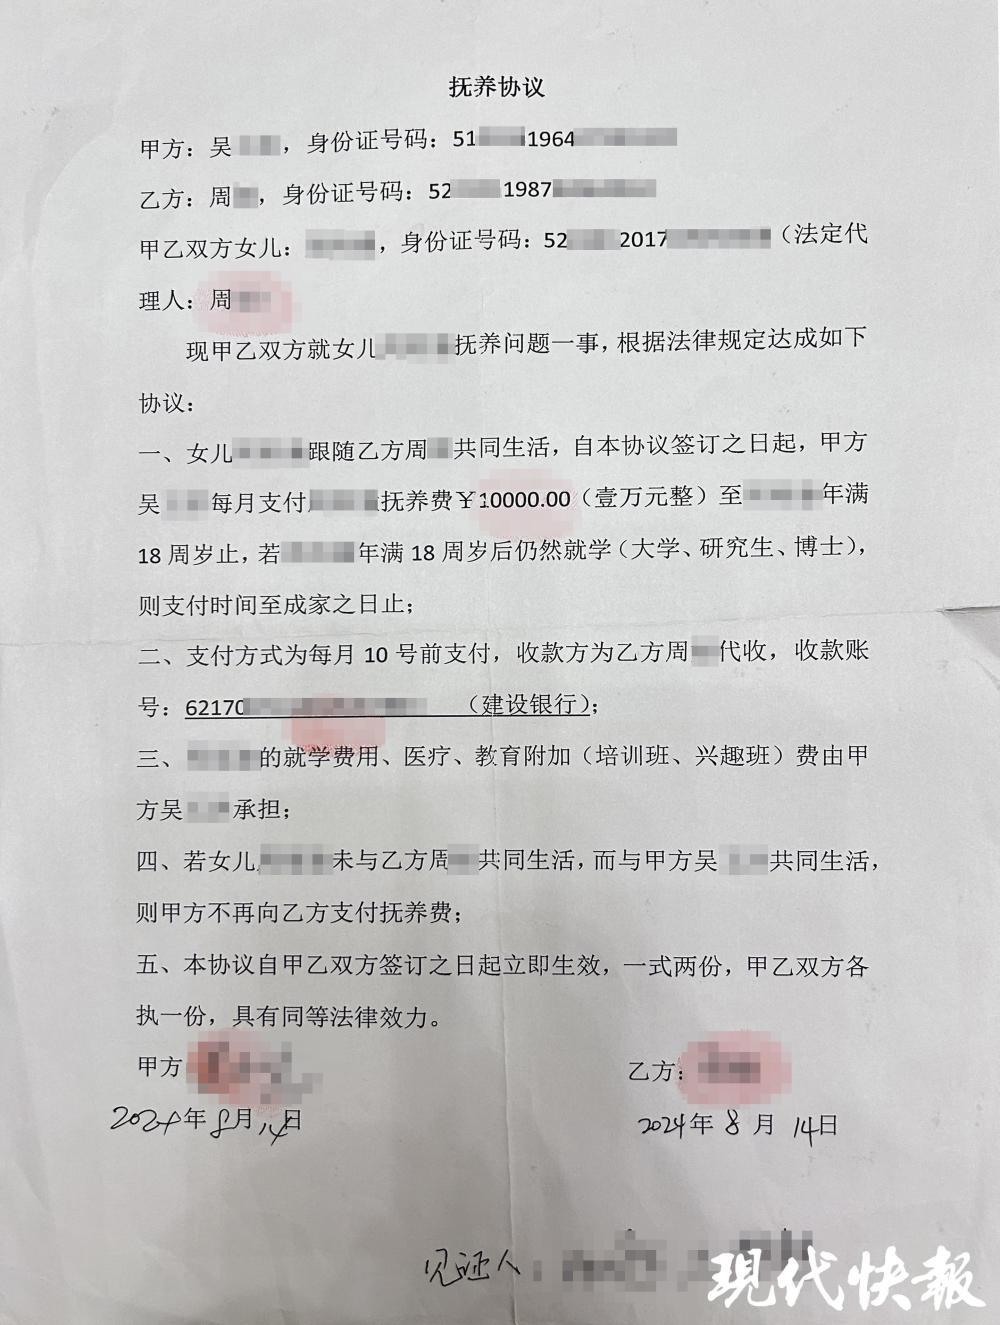 抚养协议
甲方：吴，身份证号码：51 1964
乙方：周，身份证号码：52 1987
甲乙双方女儿：，身份证号码：52 2017（法定代
理人：周
现甲乙双方就女儿抚养问题一事，根据法律规定达成如下
协议：
一、女儿跟随乙方周共同生活，自本协议签订之日起，甲方
吴每月支付抚养费￥10000.00（壹万元整）至年满
18周岁止，若年满18周岁后仍然就学（大学、研究生、博士），
则支付时间至成家之日止；
二、支付方式为每月10号前支付，收款方为乙方周代收，收款账
号：62170（建设银行）；
三、的就学费用、医疗、教育附加（培训班、兴趣班）费由甲
方吴承担；
四、若女儿未与乙方周共同生活，而与甲方吴共同生活，
则甲方不再向乙方支付抚养费；
五、本协议自甲乙双方签订之日起立即生效，一式两份，甲乙双方各
执一份，具有同等法律效力。
甲方 乙方：
2024年8月14日 2024年8月14日
见证人：
现代快报